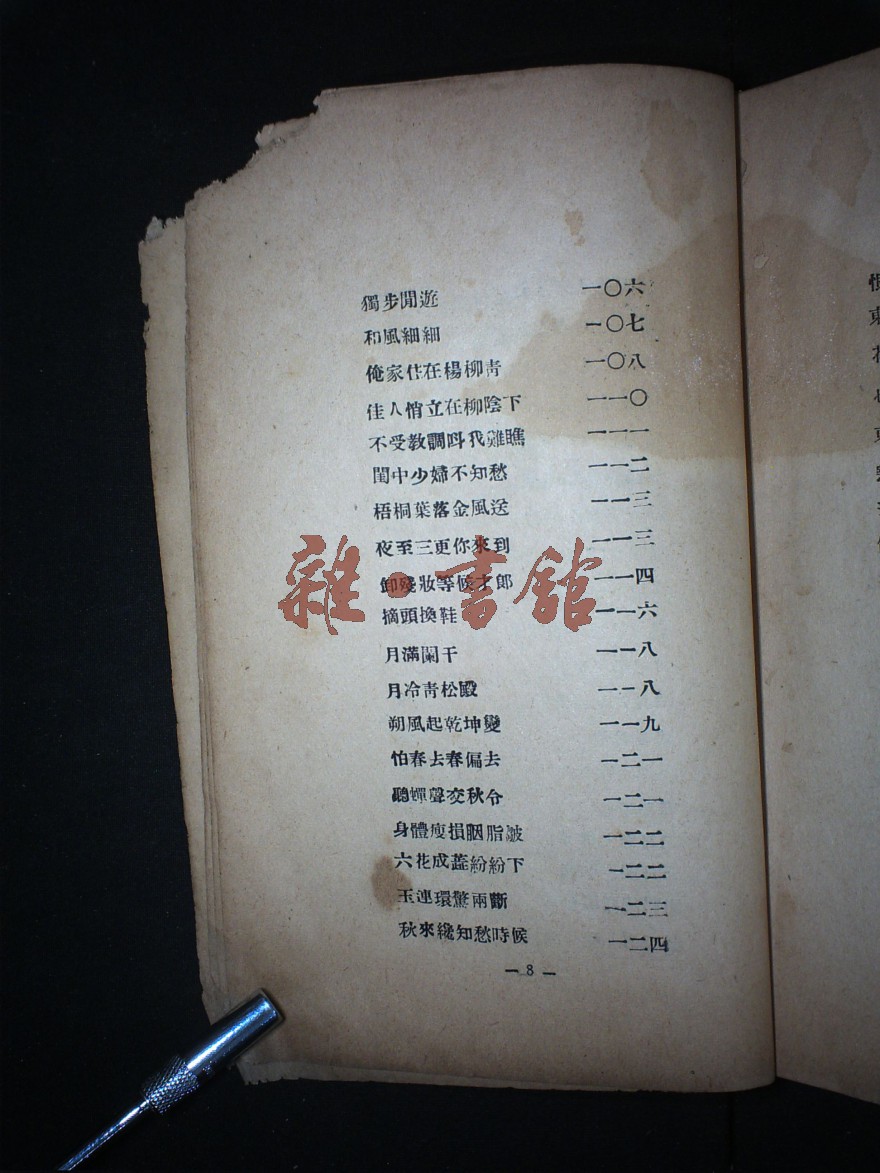 獨步閒遊 一〇六
和風細細 一〇七
俺家住在楊柳青 一〇八
佳人悄立在柳陰下 一一〇
不受教調呌我難瞧 一一一
閨中少婦不知愁 一一二
梧桐葉落金風送 一一三
夜至三更你來到 一一三
卸殘妝等候才郎 一一四
摘頭換鞋 一一六
月滿闌干 一一八
月冷青松殿 一一八
朔風起乾坤變 一一九
怕春去春偏去 一二一
聽蟬聲交秋令 一二一
身體瘦損胭脂皴 一二二
六花成蕋紛紛下 一二二
玉連環驚兩斷 一二三
秋來纔知愁時候 一二四
— 8 —
雜·書館